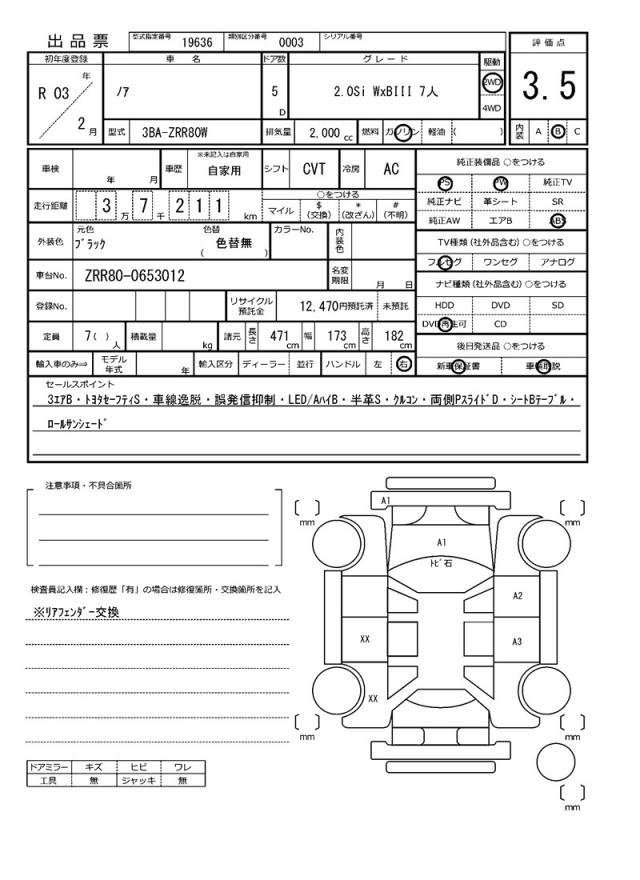 出品票 型式指定番号 19636 類別区分番号 0003 シリアル番号
初年度登録 車名 ドア数 グレード 駆動 評価点
R 03 年 2月 ﾉｱ 5 D 2.0Si WxBIII 7人 2WD 4WD 3.5
型式 3BA-ZRR80W 排気量 2,000 cc 燃料 ガソリン 軽油 ( ) 内装 A B C
車検 年 月 車歴 ※未記入は自家用 自家用 シフト CVT 冷房 AC 純正装備品 ○をつける
PS PW 純正TV
走行距離 3万 7千 2 1 1 km ○をつける マイル $(交換) *(改ざん) #(不明) 純正ナビ 革シート SR
純正AW エアB ABS
外装色 元色 ﾌﾞﾗｯｸ 色替 色替無 ( ) カラーNo. 内装色 TV種類 (社外品含む) ○をつける
フルセグ ワンセグ アナログ
車台No. ZRR80-0653012 名変期限 月 日 ナビ種類 (社外品含む) ○をつける
登録No. リサイクル預託金 12,470円預託済 未預託 HDD DVD SD
DVD再生可 CD
定員 7( )人 積載量 kg 諸元 長さ 471cm 幅 173cm 高さ 182cm 後日発送品 ○をつける
輸入車のみ⇒ モデル年式 年 輸入区分 ディーラー 並行 ハンドル 左 右 新車保証書 車輌取説
セールスポイント
3ｴｱB・ﾄﾖﾀｾｰﾌﾃｨS・車線逸脱・誤発信抑制・LED/AﾊｲB・半革S・ｸﾙｺﾝ・両側PｽﾗｲﾄﾞD・ｼｰﾄBﾃｰﾌﾞﾙ・
ﾛｰﾙｻﾝｼｪｰﾄﾞ
注意事項・不具合箇所
A1
mm mm
A1
ﾄﾋﾞ石
検査員記入欄：修復歴「有」の場合は修復箇所・交換箇所を記入
A2
※ﾘｱﾌｪﾝﾀﾞｰ交換
XX A3
XX
mm mm
ドアミラー キズ ヒビ ワレ
工具 無 ジャッキ 無
mm